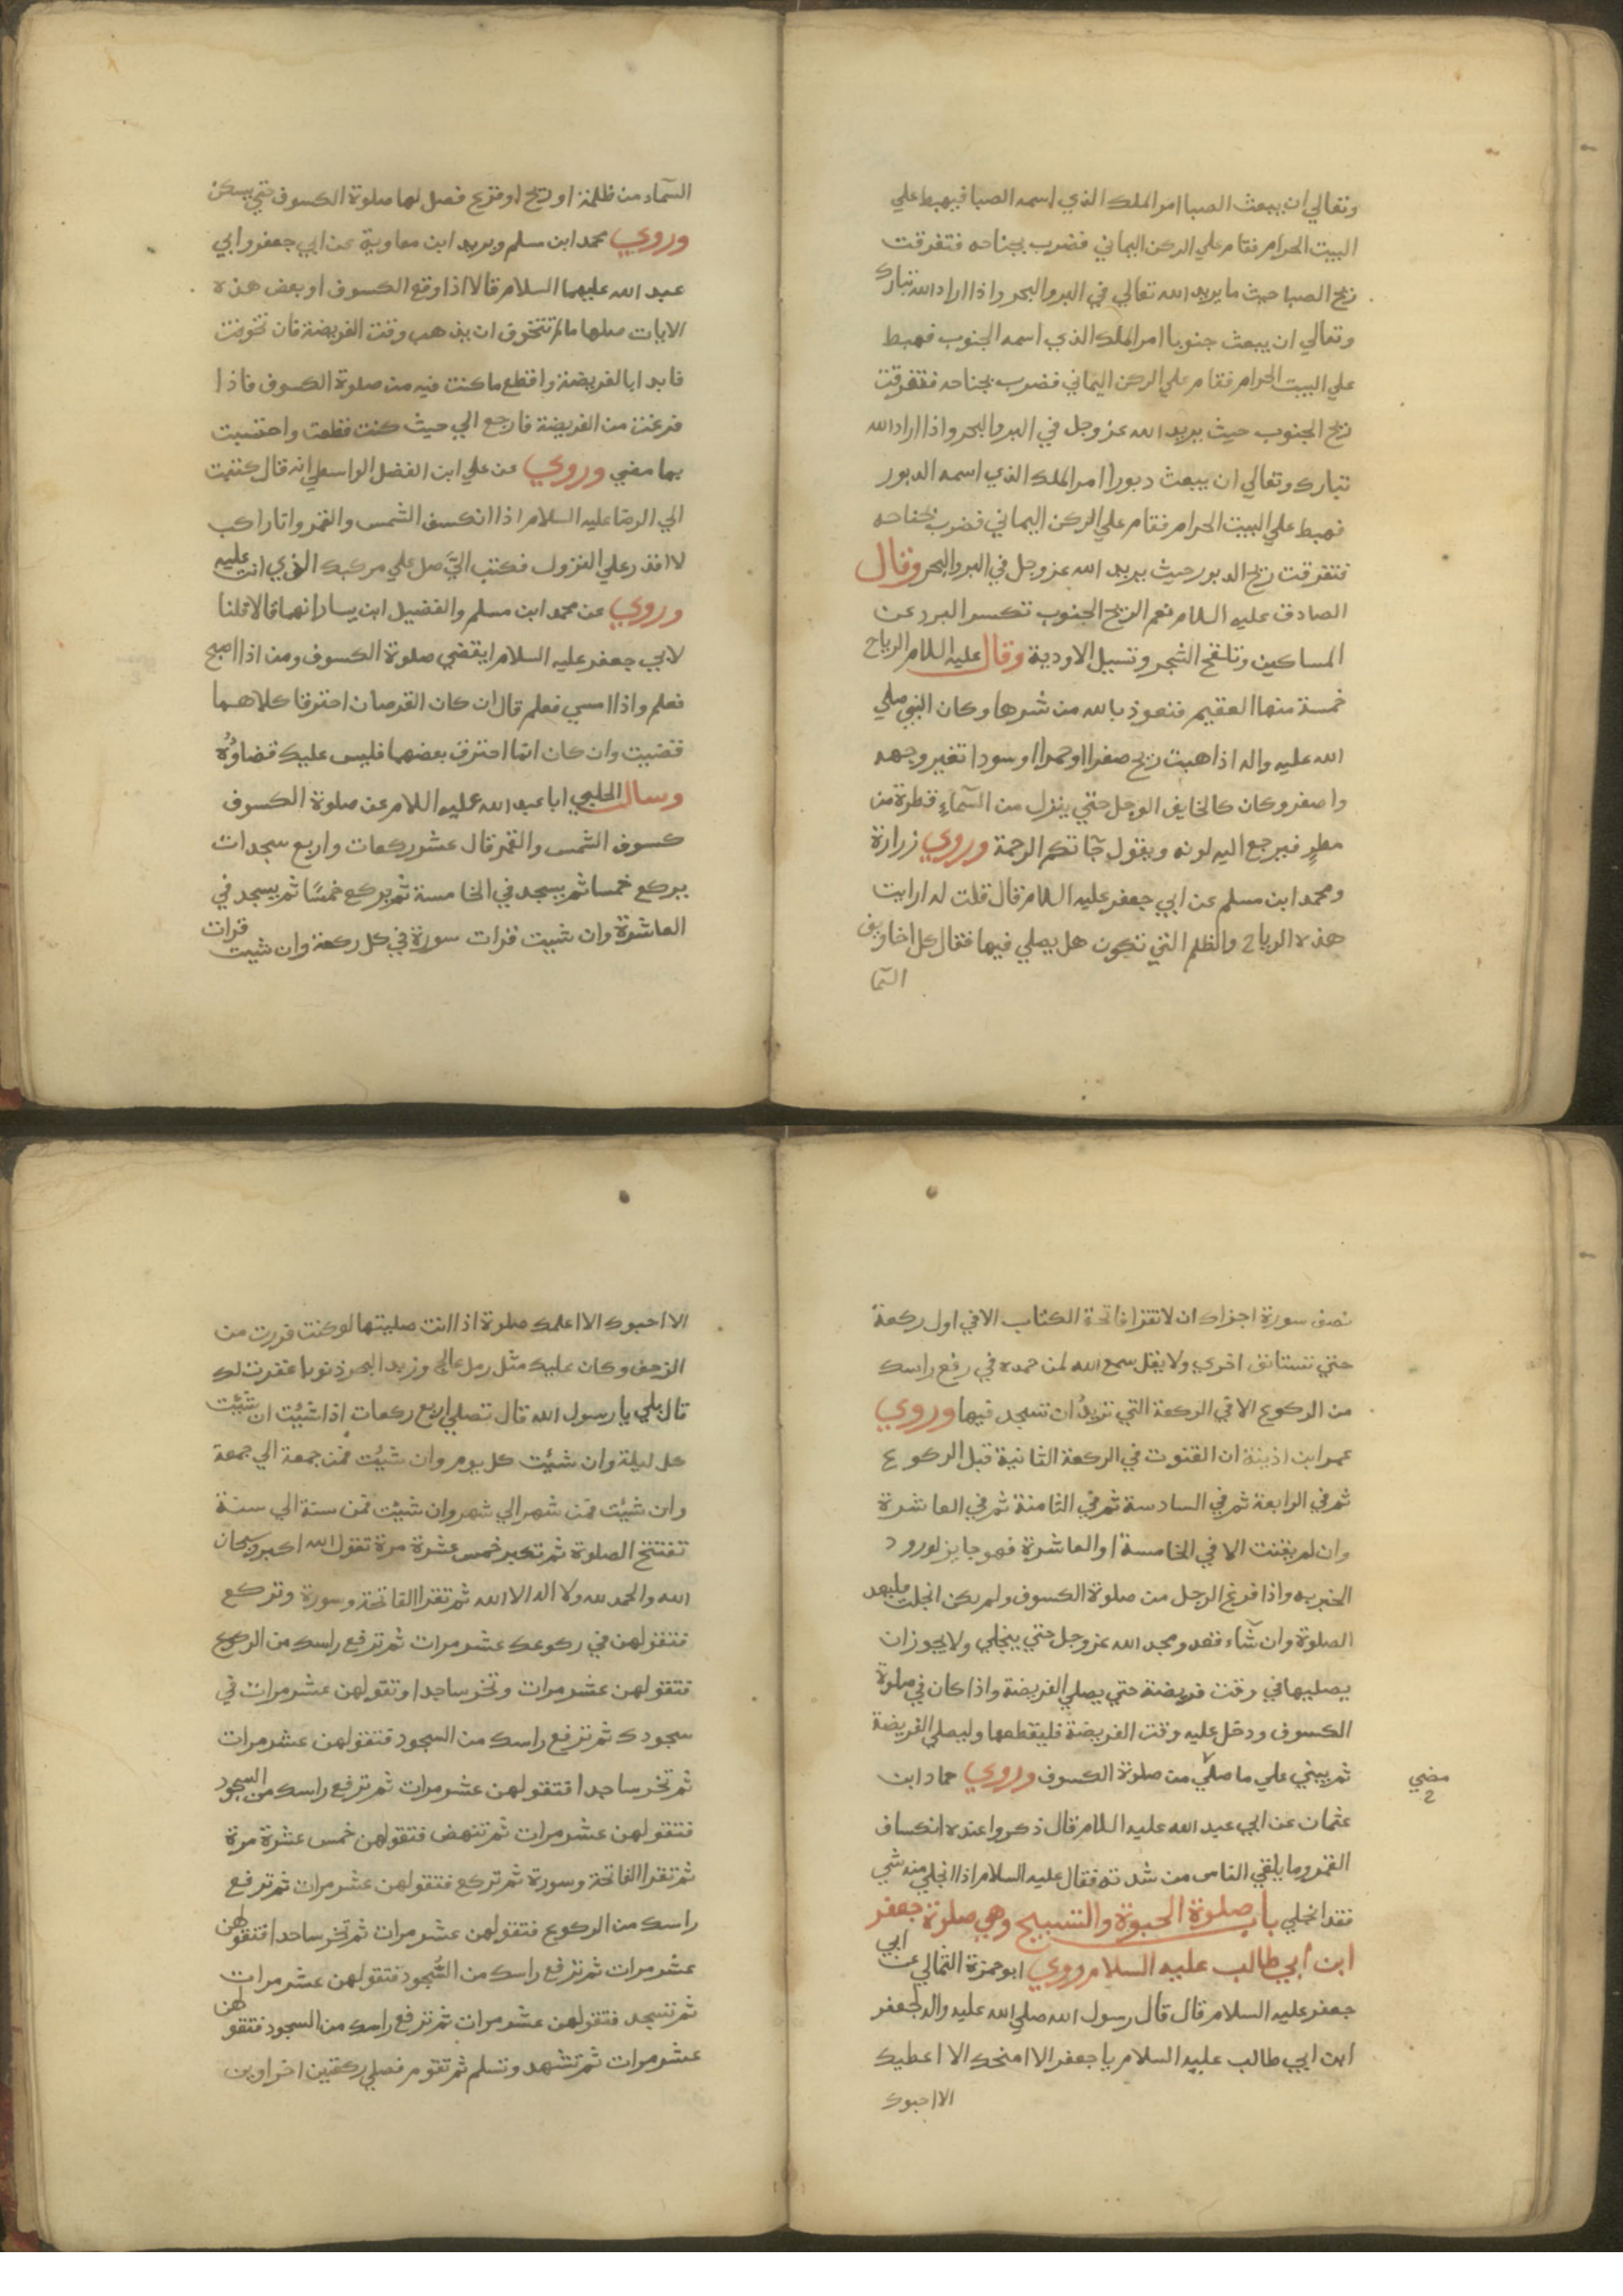 وتعالي ان يبعث الصبا امر الملك الذي اسمه الصبا فيهبط علي
البيت الحرام فقام علي الركن اليماني فضرب بجناحه فتفرقت
ريح الصبا حيث ما يريد الله تعالي في البر والبحر واذا اراد الله تبارك
وتعالي ان يبعث جنوبا امر الملك الذي اسمه الجنوب فهبط
علي البيت الحرام فقام علي الركن اليماني فضرب بجناحه فتفرقت
ريح الجنوب حيث يريد الله عز وجل في البر والبحر واذا اراد الله
تبارك وتعالي ان يبعث دبورا امر الملك الذي اسمه الدبور
فهبط علي البيت الحرام فقام علي الركن اليماني فضرب بجناحه
فتفرقت ريح الدبور حيث يريد الله عز وجل في البر والبحر وقال
الصادق عليه السلام نعم الريح الجنوب تكسر البرد عن
المساكين وتلقح الشجر وتسيل الاودية وقال عليه السلام الرياح
خمسة منها العقيم فنعوذ بالله من شرها وكان النبي صلي
الله عليه واله اذا هبت ريح صفرا او حمرا او سودا تغير وجهه
واصفر وكان كالخايف الوجل حتي ينزل من السمآء قطرة من
مطر فيرجع اليه لونه ويقول جآتكم الرحمة وروي زرارة
ومحمد ابن مسلم عن ابي جعفر عليه السلام قال قلت له ارايت
هذه الرياح والظلم التي تكون هل يصلي فيها فقال كل اخاويف
السما
السمآء من ظلمة او ريح او فزع فصل لها صلوة الكسوف حتي يسكن
وروي محمد ابن مسلم وبريد ابن معاوية عن ابي جعفر وابي
عبد الله عليهما السلام قالا اذا وقع الكسوف او بعض هذه
الايات صلها ما لم تتخوف ان يذهب وقت الفريضة فان تخوفت
فابدا بالفريضة واقطع ما كنت فيه من صلوة الكسوف فاذا
فرغت من الفريضة فارجع الي حيث كنت قطعت واحتسبت
بما مضي وروي عن علي ابن الفضل الواسطي انه قال كتبت
الي الرضا عليه السلام اذا انكسف الشمس والقمر وانا راكب
لا اقدر علي النزول فكتب اليّ صل علي مركبك الذي انت عليه
وروي عن محمد ابن مسلم والفضيل ابن يسار انهما قالا قلنا
لابي جعفر عليه السلام ايقضي صلوة الكسوف ومن اذا اصبح
فعلم واذا امسي فعلم قال ان كان القرصان احترقا كلاهما
قضيت وان كان انما احترق بعضهما فليس عليك قضاؤه
وسال الحلبي ابا عبد الله عليه السلام عن صلوة الكسوف
كسوف الشمس والقمر قال عشر ركعات واربع سجدات
يركع خمسا ثم يسجد في الخامسة ثم يركع خمسًا ثم يسجد في
العاشرة وان شيت قرات سورة في كل ركعة وان شيت قرات
نصف سورة اجزاك ان لا تقرا فاتحة الكتاب الا في اول ركعة
حتي تستانف اخري ولا يقل سمع الله لمن حمده في رفع راسك
من الركوع الا في الركعة التي تريد ان تسجد فيها وروي
عمر ابن اذينة ان القنوت في الركعة الثانية قبل الركوع
ثم في الرابعة ثم في السادسة ثم في الثامنة ثم في العاشرة
وان لم يقنت الا في الخامسة او العاشرة فهو جايز لورود
الخبر به واذا فرغ الرجل من صلوة الكسوف ولم يكن انجلت فليعد
الصلوة وان شآء قعد ومجد الله عز وجل حتي ينجلي ولا يجوز ان
يصليها في وقت فريضة حتي يصلي الفريضة واذا كان في صلوة
الكسوف ودخل عليه وقت الفريضة فليقطعها وليصلي الفريضة
ثم يبني علي ما صلي من صلوة الكسوف وروي حماد ابن
مضي
عثمان عن ابي عبد الله عليه السلام قال ذكروا عنده انكساف
القمر وما يلقي الناس من شدته فقال عليه السلام اذا انجلي منه شي
فقد انجلي باب صلوة الحبوة والتسبيح وهي صلوة جعفر
ابن أبي طالب عليه السلام روي ابو حمزة الثمالي عن ابي
جعفر عليه السلام قال قال رسول الله صلي الله عليه واله لجعفر
ابن ابي طالب عليه السلام يا جعفر الا امنحك الا اعطيك
الا احبوك
الا احبوك الا اعلمك صلوة اذا انت صليتها لو كنت فررت من
الزحف وكان عليك مثل رمل عالج وزبد البحر ذنوبا غفرت لك
قال بلي يا رسول الله قال تصلي اربع ركعات اذا شئت ان شئت
كل ليلة وان شئت كل يوم وان شئت فمن جمعة الي جمعة
وان شئت فمن شهر الي شهر وان شئت فمن سنة الي سنة
تفتتح الصلوة ثم تكبر خمس عشرة مرة تقول الله اكبر وسبحان
الله والحمد لله ولا اله الا الله ثم تقرا الفاتحة وسورة وتركع
فتقولهن في ركوعك عشر مرات ثم ترفع راسك من الركوع
فتقولهن عشر مرات وتخر ساجدا وتقولهن عشر مرات في
سجودك ثم ترفع راسك من السجود فتقولهن عشر مرات
ثم تخر ساجدا فتقولهن عشر مرات ثم ترفع راسك من السجود
فتقولهن عشر مرات ثم تنهض فتقولهن خمس عشرة مرة
ثم تقرا الفاتحة وسورة ثم تركع فتقولهن عشر مرات ثم ترفع
راسك من الركوع فتقولهن عشر مرات ثم تخر ساجدا فتقولهن
عشر مرات ثم ترفع راسك من السُّجود فتقولهن عشر مرات
ثم تسجد فتقولهن عشر مرات ثم ترفع راسك من السجود فتقولهن
عشر مرات ثم تشهد وتسلم ثم تقوم فصلي ركعتين اخراوين